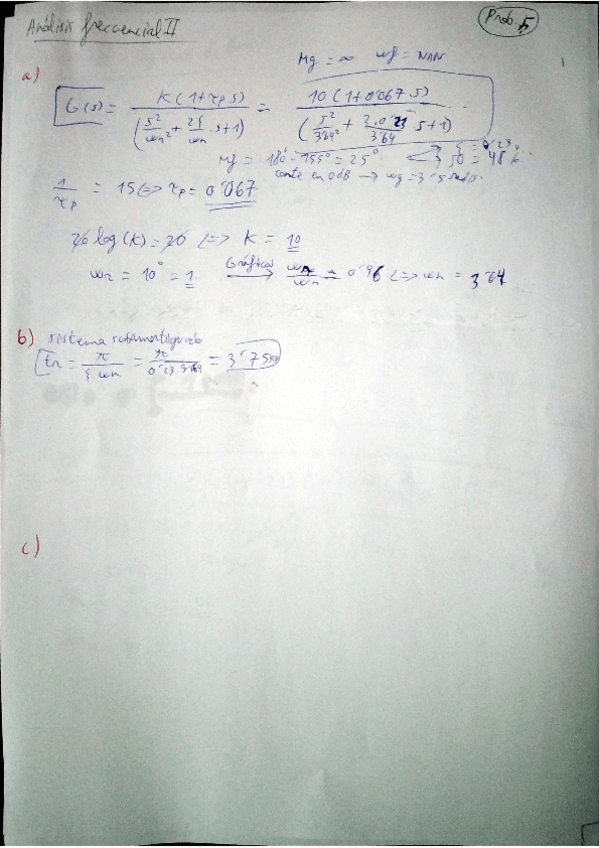 Análisis frecuencial II
Prob. 5
Mg = ∞ wf = NAN
a)
G(s) = K(1+τp s) / (s²/wn² + 2ξ/wn · s + 1) = 10(1+0'067 s) / (s²/3'64² + 2·0'23/3'64 s + 1)
Mf = 180° - 155° = 25°
ξ = 0'23
SO = 48%
corte en 0dB → wg = 3'5 rad/s
1/τp = 15 ⇔ τp = 0'067
20 log(K) = 20 ⇔ K = 10
wr = 10° = 1 Gráfica = 0'96 ⇔ wn = 3'64
b) sistema subamortiguado
tr = π / ξ·wn = π / 0'23·3'64 = 3'75
c)